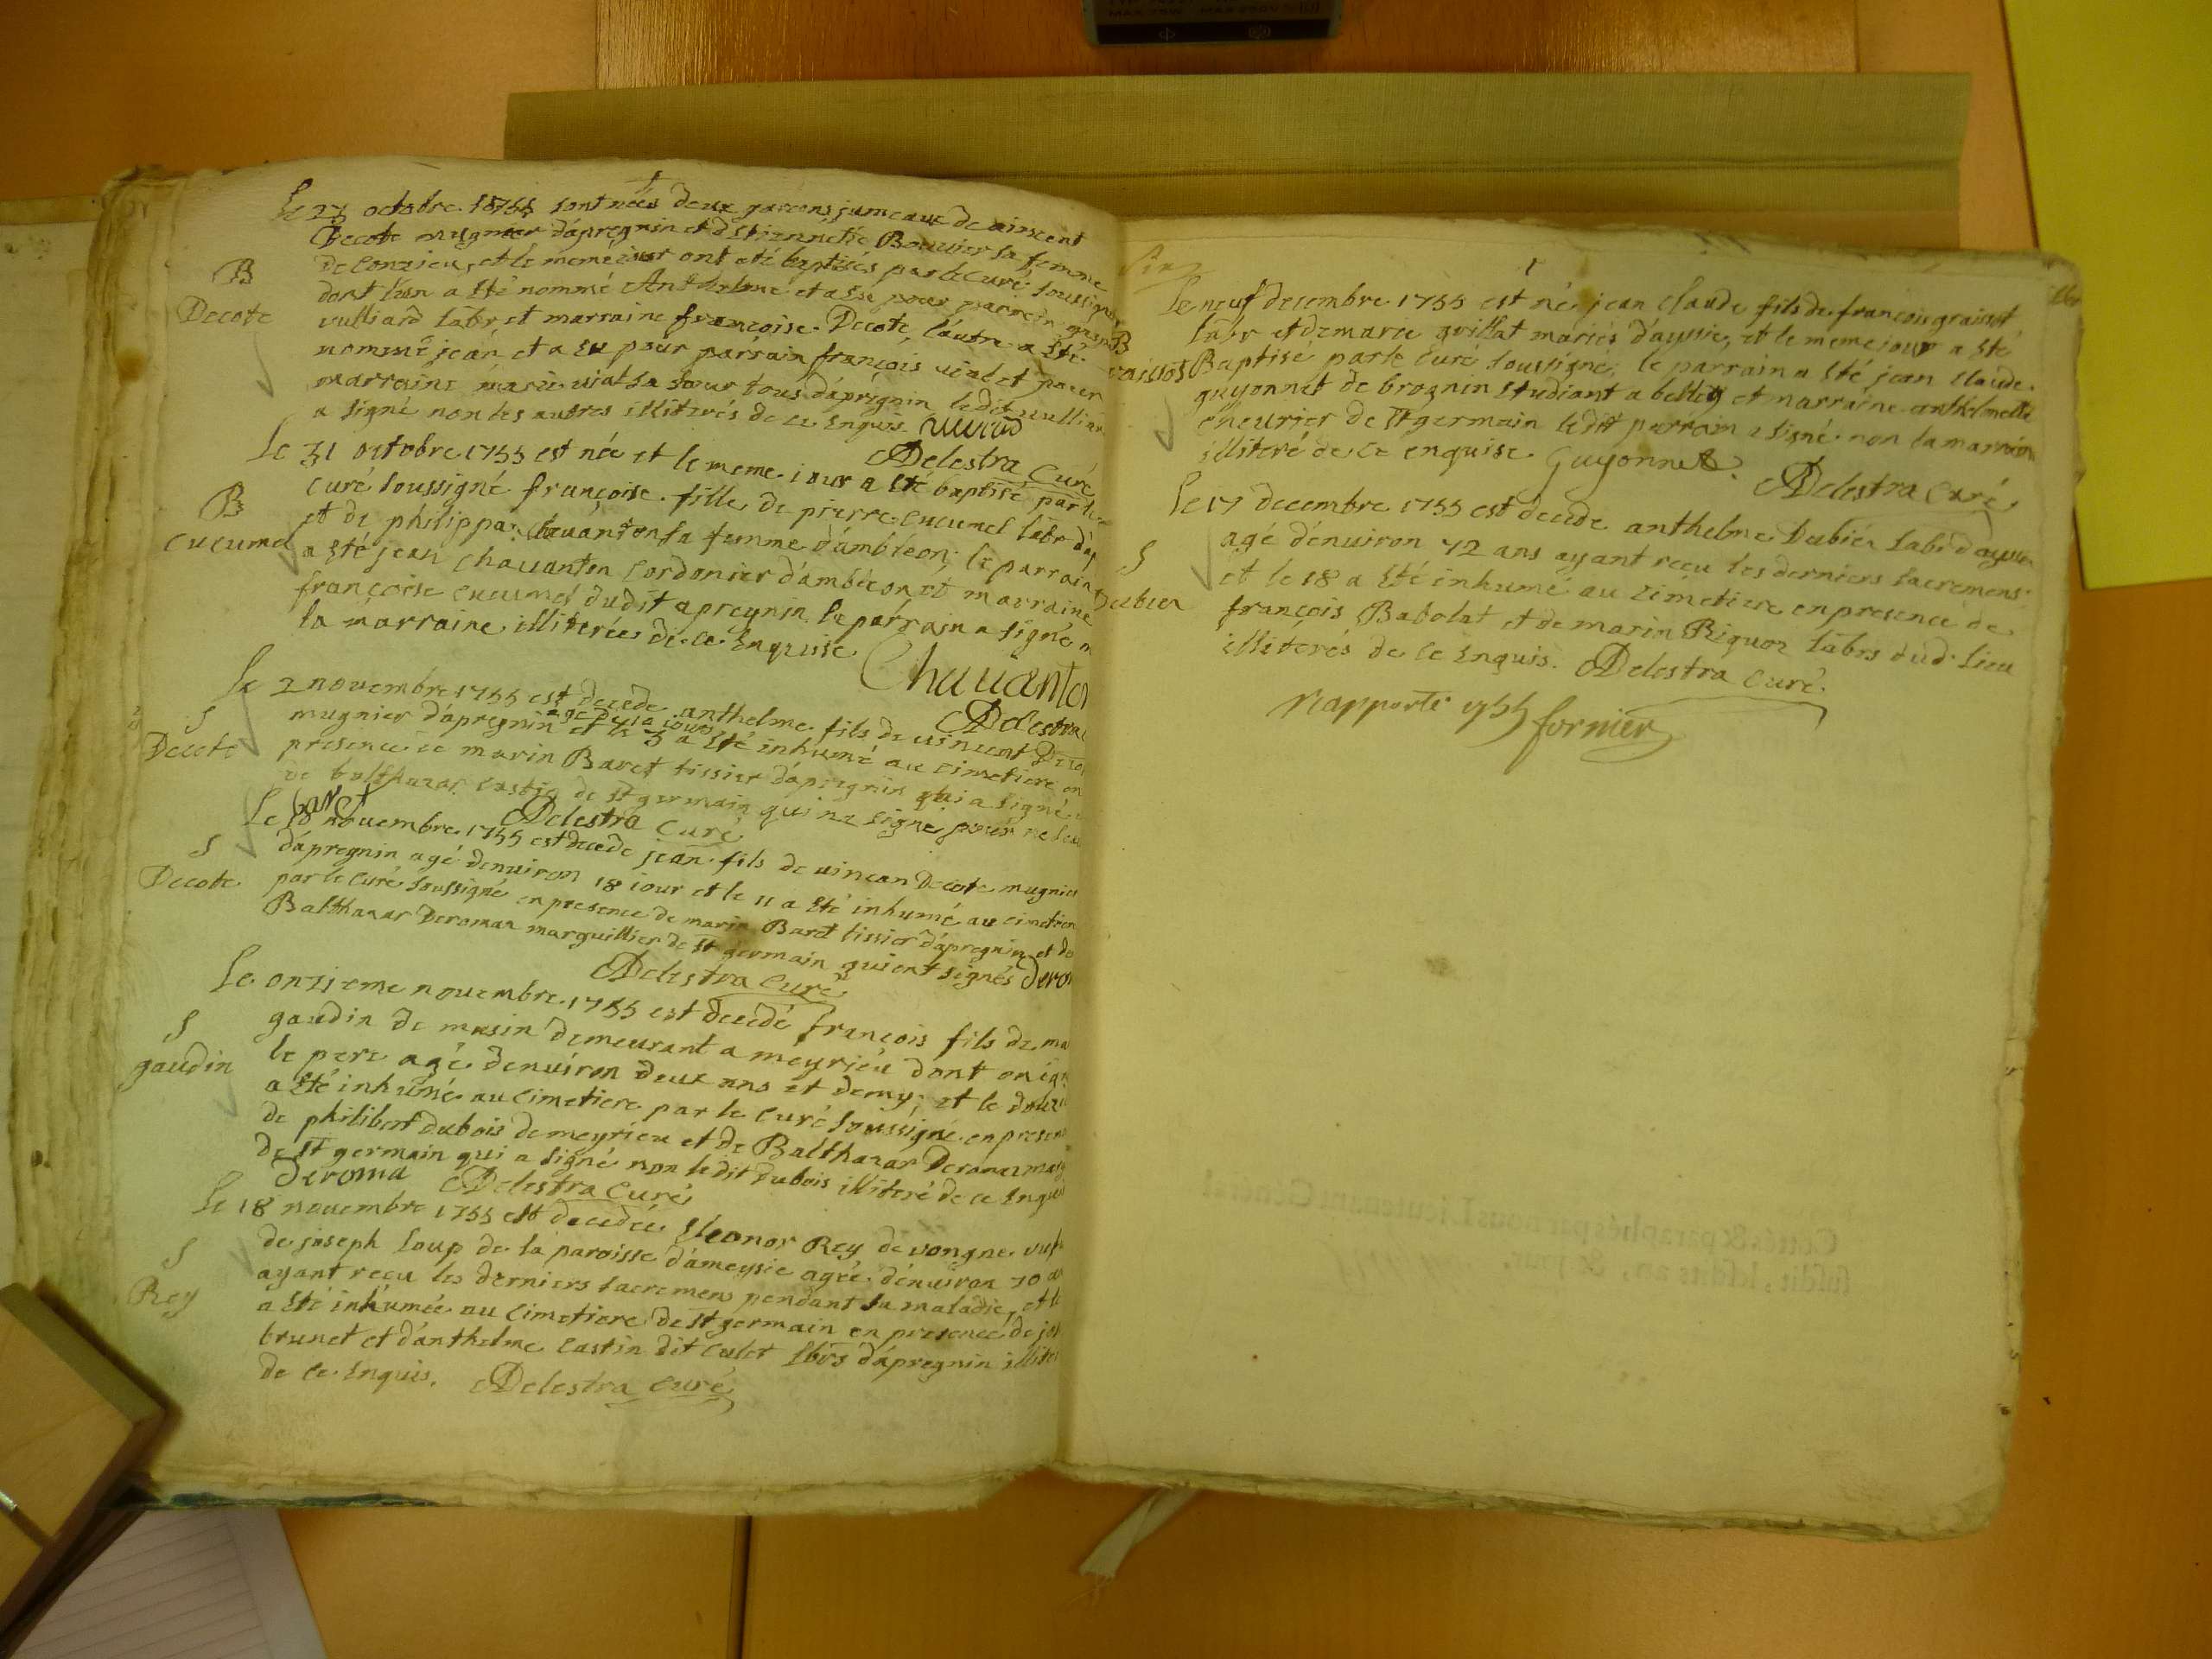 Le 27 octobre 1755 sont nées deux garcons jumeaux de vincent
Decote mugnier d'apregnin et d'Etiennette Bouvier sa femme
B
de Conzieu, et le meme iour ont eté baptisés par le Curé soussigné
Decote
dont l'un a Eté nommé Anthelme et a Eu pour parrain
vulliard labr et marraine françoise Decote, l'autre a Eté
nommé jean et a Eu pour parrain françois vial et pour
marraine marie vial sa sœur tous d'apregnin ledit vulliar
a signé non les autres illiterés de ce Enquis
Delestra Curé
Le 31 octobre 1755 est née et le meme iour a Eté baptisé par le
B
Curé soussigné françoise fille de pierre Cucumel labr d'ap
Cucumel
et de philippa Chavanton sa femme d'ambléon; le parrain
a Eté jean Chavanton Cordonier d'ambléon et marraine
françoise Cucumel dudit apregnin le parrain a signé n
la marraine illiterée de ce Enquise
Chavanton
Delestra
Le 2 novembre 1755 est decede anthelme fils de vincent Deco
agé de iours
S
mugnier d'apregnin et le 3 a Eté inhumé au cimetiere en
Decote
presence de marin Baret tissier d'apregnin qui a signé
de balthazar Castin de st germain qui na signé pour ne scav
baret Delestra Curé
Le novembre 1755 est decede jean fils de vincan Decote mugnier
S
d'apregnin agé denviron 18 iour et le 11 a Eté inhumé au cimetiere
Decote
par le Curé soussigné en presence de marin Baret tissier d'apregnin et de
Balthazar Deromaz marguillier de st germain qui ont signés Derom
Delestra Curé
Le onzieme novembre 1755 est decedé françois fils de ma
S
gaudin de musin demeurant a meyrieu dont on ign
gaudin
le pere agé denviron deux ans et demy; et le douzi
a Eté inhumé au Cimetiere par le Curé soussigné en presen
de philibert dubois de meyrieu et de Balthazar Deromaz marg
de st germain qui a signé non ledit dubois illiteré de ce Enquis
Deroma Delestra Curé
Le 18 novembre 1755 est decedée Eleonor Rey de vongne vufv
S
de joseph Loup de la paroisse d'ameysie agée denviron 70 an
Rey
ayant reçu les derniers sacremens pendant sa maladie, et le
a Eté inhumée au Cimetiere de st germain en presence de jos
brunet et d'anthelme Castin dit Culet lbrs d'apregnin illiter
de ce Enquis. Delestra Curé
Le neuf decembre 1755 est né jean Claude fils de françois graissot
labr et de marie grillat mariés d'ayssie, et le meme iour a Eté
B
raissot
Baptisé par le Curé soussigné; le parrain a Eté jean Claude
guyonnet de brognin Etudiant a belley et marraine anthelmette
cheurier de st germain ledit parrain a signé non la marraine
illiteré de ce enquise. Guyonnet.
Delestra Curé
Le 17 decembre 1755 est decede anthelme Dubier labr d'ayssie
S
agé d'environ 72 ans ayant reçu les derniers sacremens
Dubier
et le 18 a Eté inhumé au cimetiere en presence de
françois Babolat et de marin Riguoz labrs dud. lieu
illiterés de ce Enquis. Delestra Curé
Rapporte 1755 fornier
Cottés & paraphés par nous Lieutenant Général
susdit, lesdits an, & jour,